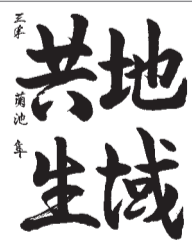 地域
共生
三年 菊池 隼